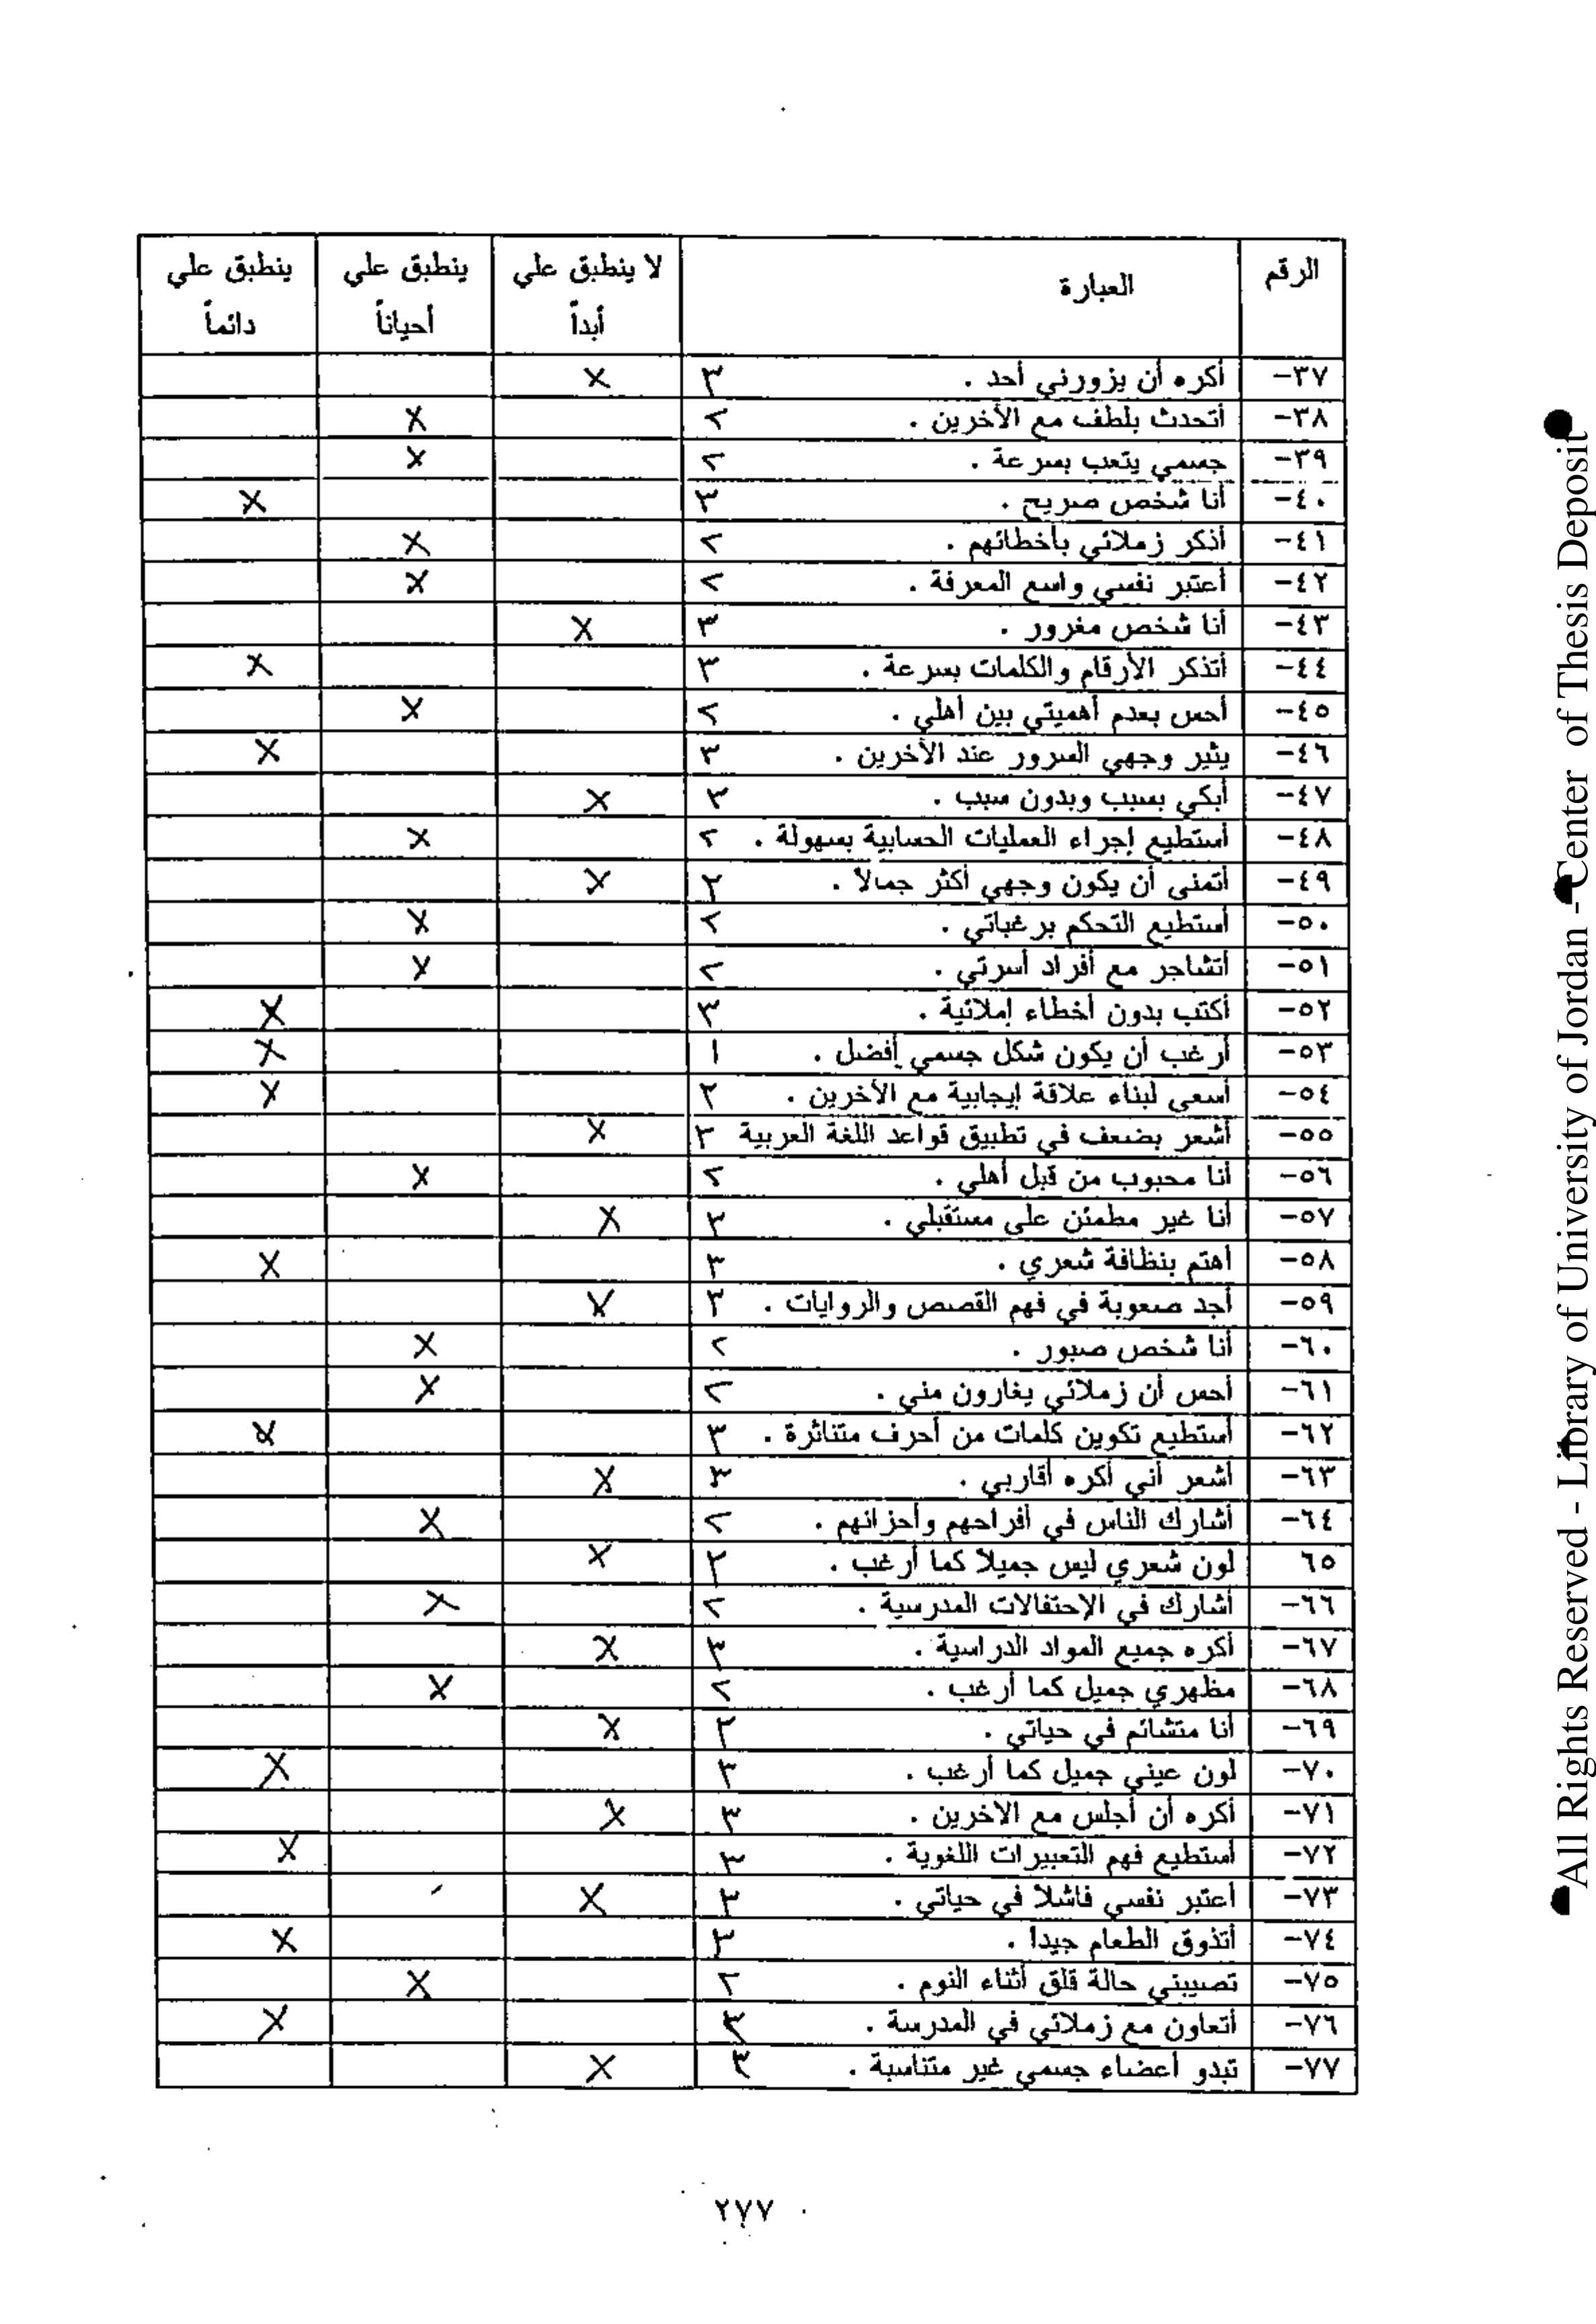 الرقم العبارة لا ينطبق علي أبداً ينطبق علي أحياناً ينطبق علي دائماً
٣٧- أكره أن يزورني أحد . ٣ ×
٣٨- أتحدث بلطف مع الآخرين . ٢ ×
٣٩- جسمي يتعب بسرعة . ٢ ×
٤٠- أنا شخص صريح . ٣ ×
٤١- أذكر زملائي بأخطائهم . ٢ ×
٤٢- أعتبر نفسي واسع المعرفة . ٢ ×
٤٣- أنا شخص مغرور . ٣ ×
٤٤- أتذكر الأرقام والكلمات بسرعة . ٣ ×
٤٥- أحس بعدم أهميتي بين أهلي . ٢ ×
٤٦- يثير وجهي السرور عند الآخرين . ٣ ×
٤٧- أبكي بسبب وبدون سبب . ٣ ×
٤٨- أستطيع إجراء العمليات الحسابية بسهولة . ٢ ×
٤٩- أتمنى أن يكون وجهي أكثر جمالاً . ٣ ×
٥٠- أستطيع التحكم برغباتي . ٢ ×
٥١- أتشاجر مع أفراد أسرتي . ٢ ×
٥٢- أكتب بدون أخطاء إملائية . ٣ ×
٥٣- أرغب أن يكون شكل جسمي أفضل . ١ ×
٥٤- أسعى لبناء علاقة إيجابية مع الآخرين . ٣ ×
٥٥- أشعر بضعف في تطبيق قواعد اللغة العربية ٣ ×
٥٦- أنا محبوب من قبل أهلي . ٢ ×
٥٧- أنا غير مطمئن على مستقبلي . ٣ ×
٥٨- أهتم بنظافة شعري . ٣ ×
٥٩- أجد صعوبة في فهم القصص والروايات . ٣ ×
٦٠- أنا شخص صبور . ٢ ×
٦١- أحس أن زملائي يغارون مني . ٢ ×
٦٢- أستطيع تكوين كلمات من أحرف متناثرة . ٣ ×
٦٣- أشعر أني أكره أقاربي . ٣ ×
٦٤- أشارك الناس في أفراحهم وأحزانهم . ٢ ×
٦٥ لون شعري ليس جميلاً كما أرغب . ٣ ×
٦٦- أشارك في الإحتفالات المدرسية . ٢ ×
٦٧- أكره جميع المواد الدراسية . ٣ ×
٦٨- مظهري جميل كما أرغب . ٢ ×
٦٩- أنا متشائم في حياتي . ٣ ×
٧٠- لون عيني جميل كما أرغب . ٣ ×
٧١- أكره أن أجلس مع الآخرين . ٣ ×
٧٢- أستطيع فهم التعبيرات اللغوية . ٣ ×
٧٣- أعتبر نفسي فاشلاً في حياتي . ٣ ×
٧٤- أتذوق الطعام جيداً . ٣ ×
٧٥- تصيبني حالة قلق أثناء النوم . ٢ ×
٧٦- أتعاون مع زملائي في المدرسة . ٣ ×
٧٧- تبدو أعضاء جسمي غير متناسبة . ٣ ×
٢٧٧
All Rights Reserved - Library of University of Jordan - Center of Thesis Deposit